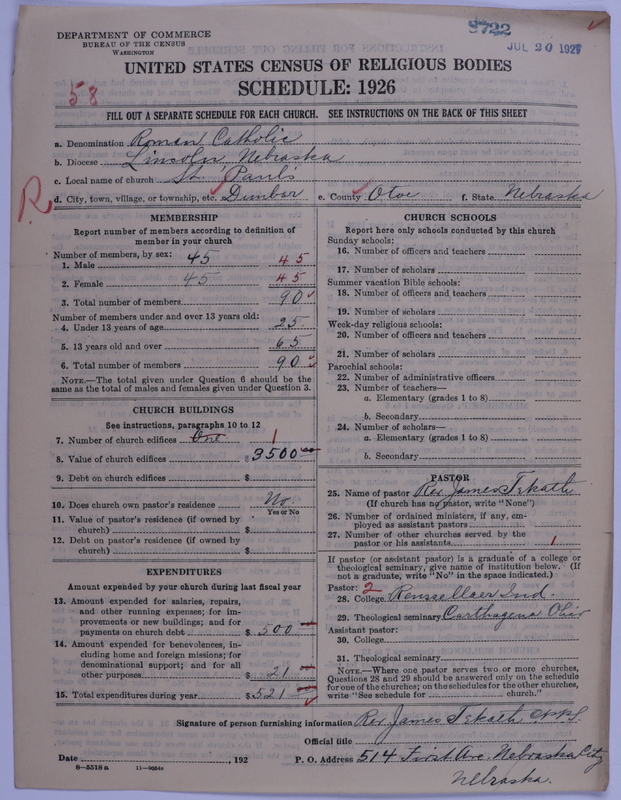 DEPARTMENT OF COMMERCE
BUREAU OF THE CENSUS
WASHINGTON
JUL 20 1927
UNITED STATES CENSUS OF RELIGIOUS BODIES
SCHEDULE: 1926
58
FILL OUT A SEPARATE SCHEDULE FOR EACH CHURCH. SEE INSTRUCTIONS ON THE BACK OF THIS SHEET
a. Denomination Roman Catholic
b. Diocese Lincoln, Nebraska
c. Local name of church St. Paul's
R
d. City, town, village, or township, etc. Dunbar e. County Otoe f. State Nebraska
MEMBERSHIP
Report number of members according to definition of member in your church
Number of members, by sex:
1. Male 45 45
2. Female 45 45
3. Total number of members 90
Number of members under and over 13 years old:
4. Under 13 years of age 25
5. 13 years old and over 65
6. Total number of members 90
NOTE.—The total given under Question 6 should be
same as the total of males and females given under Question 3.
CHURCH BUILDINGS
See instructions, paragraphs 10 to 12
7. Number of church edifices One 1
8. Value of church edifices $ 3500
9. Debt on church edifices $
10. Does church own pastor's residence No
Yes or No
11. Value of pastor's residence (if owned by
church) $
12. Debt on pastor's residence (if owned by
church) $
EXPENDITURES
Amount expended by your church during last fiscal year
13. Amount expended for salaries, repairs,
and other running expenses; for im-
provements or new buildings; and for
payments on church debt $ 500
14. Amount expended for benevolences, in-
cluding home and foreign missions; for
denominational support; and for all
other purposes $ 21
15. Total expenditures during year $ 521
CHURCH SCHOOLS
Report here only schools conducted by this church
Sunday schools:
16. Number of officers and teachers
17. Number of scholars
Summer vacation Bible schools:
18. Number of officers and teachers
19. Number of scholars
Week-day religious schools:
20. Number of officers and teachers
21. Number of scholars
Parochial schools:
22. Number of administrative officers
23. Number of teachers—
a. Elementary (grades 1 to 8)
b. Secondary
24. Number of scholars—
a. Elementary (grades 1 to 8)
b. Secondary
PASTOR
25. Name of pastor Rev James Tekath
(If church has no pastor, write "None")
26. Number of ordained ministers, if any, em-
ployed as assistant pastors
27. Number of other churches served by the
pastor or his assistants 1
If pastor (or assistant pastor) is a graduate of a college or
theological seminary, give name of institution below. (If
not a graduate, write "No" in the space indicated.)
Pastor: 2
28. College Rensselaer Ind.
29. Theological seminary Carthagena Ohio
Assistant pastor:
30. College
31. Theological seminary
NOTE.—Where one pastor serves two or more churches,
Questions 28 and 29 should be answered only on the schedule
for one of the churches; on the schedules for the other churches,
write "See schedule for church."
Signature of person furnishing information Rev. James Tekath
Official title
Date , 192 P. O. Address 514 First Ave. Nebraska City
8-5518 a Nebraska.